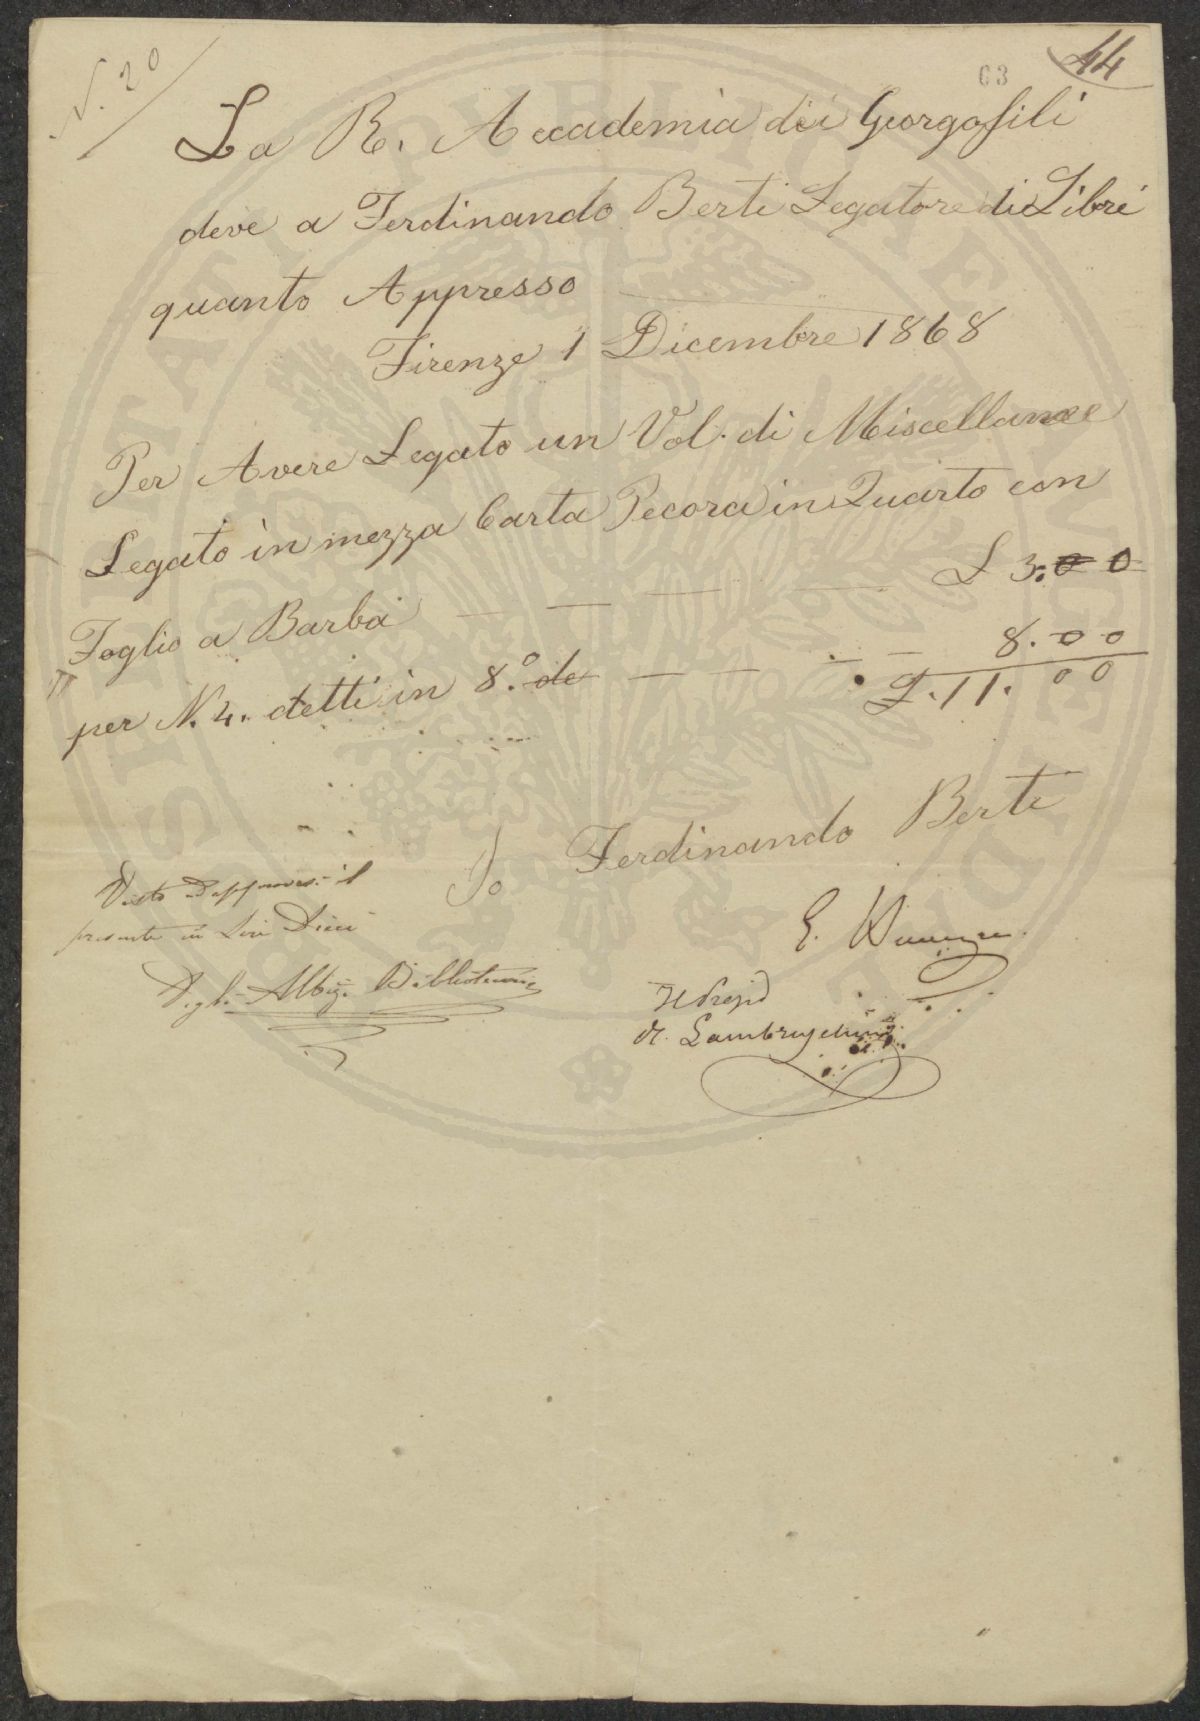 N. 20
63
44
La R. Accademia dei Georgofili
deve a Ferdinando Berti Legatore di Libri
quanto Appresso
Firenze 1 Dicembre 1868
Per Avere Legato un Vol. di Miscellanee
Legato in mezza Carta Pecora in Quarto con
Foglio a Barba L 3.00
per N. 4. detti in 8.º de 8.00
L. 11.00
Io Ferdinando Berti
Visto s'approva il
presente in Lire Dieci
Degli Albizi Bibliotecario
E.
Il Presid
R. Lambruschini